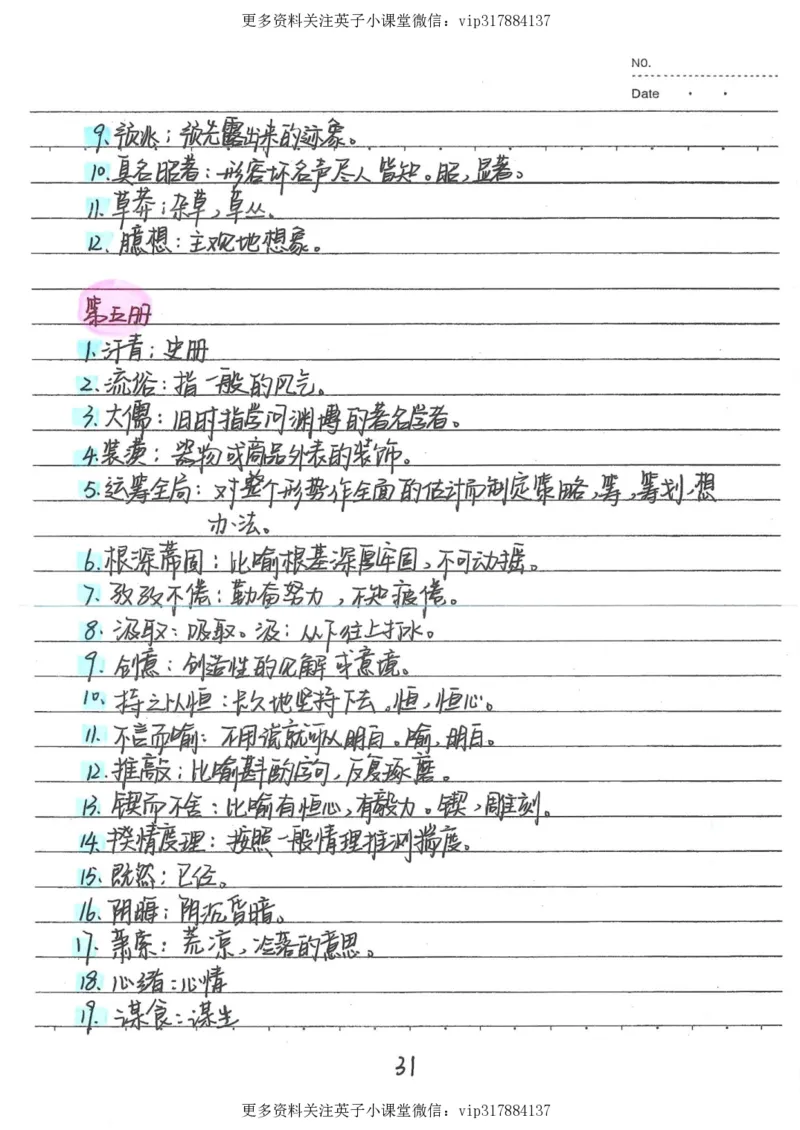 更多资料关注英子小课堂微信：vip317884137
NO.
Date
9.预兆：预先露出来的迹象。
10.臭名昭著：形容坏名声尽人皆知。昭，显著。
11.草莽：杂草，草丛。
12.臆想：主观地想象。
第五册
1.汗青：史册
2.流俗：指一般的风气。
3.大儒：旧时指学问渊博的著名学者。
4.装潢：器物或商品外表的装饰。
5.运筹全局：对整个形势作全面的估计而制定策略，筹，筹划，想
办法。
6.根深蒂固：比喻根基深厚牢固，不可动摇。
7.孜孜不倦：勤奋努力，不知疲倦。
8.汲取：吸取。汲：从下往上打水。
9.创意：创造性的见解或意境。
10.持之以恒：长久地坚持下去。恒，恒心。
11.不言而喻：不用说就可以明白。喻，明白。
12.推敲：比喻斟酌字句，反复琢磨。
13.锲而不舍：比喻有恒心，有毅力。锲，雕刻。
14.揆情度理：按照一般情理推测揣度。
15.既然：已经。
16.阴晦：阴沉昏暗。
17.萧索：荒凉，冷落的意思。
18.心绪：心情
19.谋食：谋生
31
更多资料关注英子小课堂微信：vip317884137